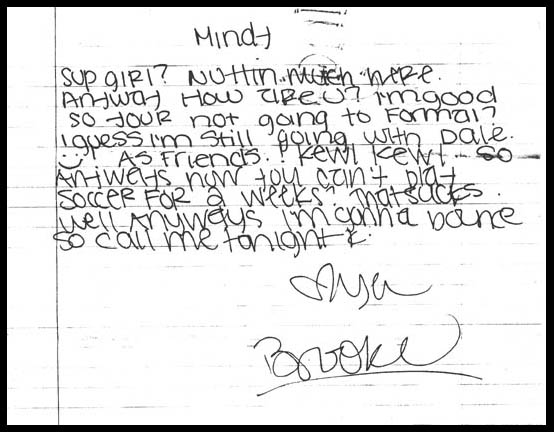 Mindy
Sup girl? Nuttin much here.
Anyway How are u? I'm good
so your not going to Formal?
I guess I'm still going with Dale.
As friends. ! Kewl Kewl. So
Anyways now you can't play
soccer for 2 weeks? That sucks.
well Anyways I'm gonna bounce
so call me tonight k.
ya
Brooke